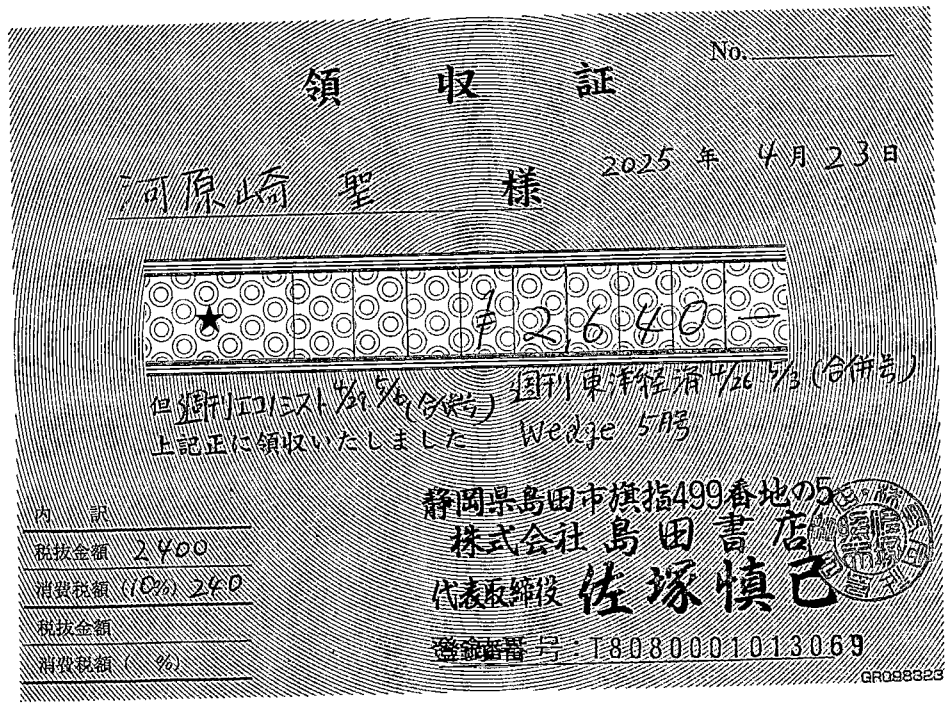 No.
領収証
2025年 4月23日
河原崎 聖 様
★ ¥2,640―
但 週刊エコノミスト 4/29. 5/6 (合併号) 週刊東洋経済 4/26 5/3 (合併号)
上記正に領収いたしました Wedge 5月号
静岡県島田市旗指499番地の5
株式会社 島田書店
代表取締役 佐塚慎己
登録番号:T8080001013069
内訳
税抜金額 2400
消費税額 (10%) 240
税抜金額
消費税額 ( %)
GR098323